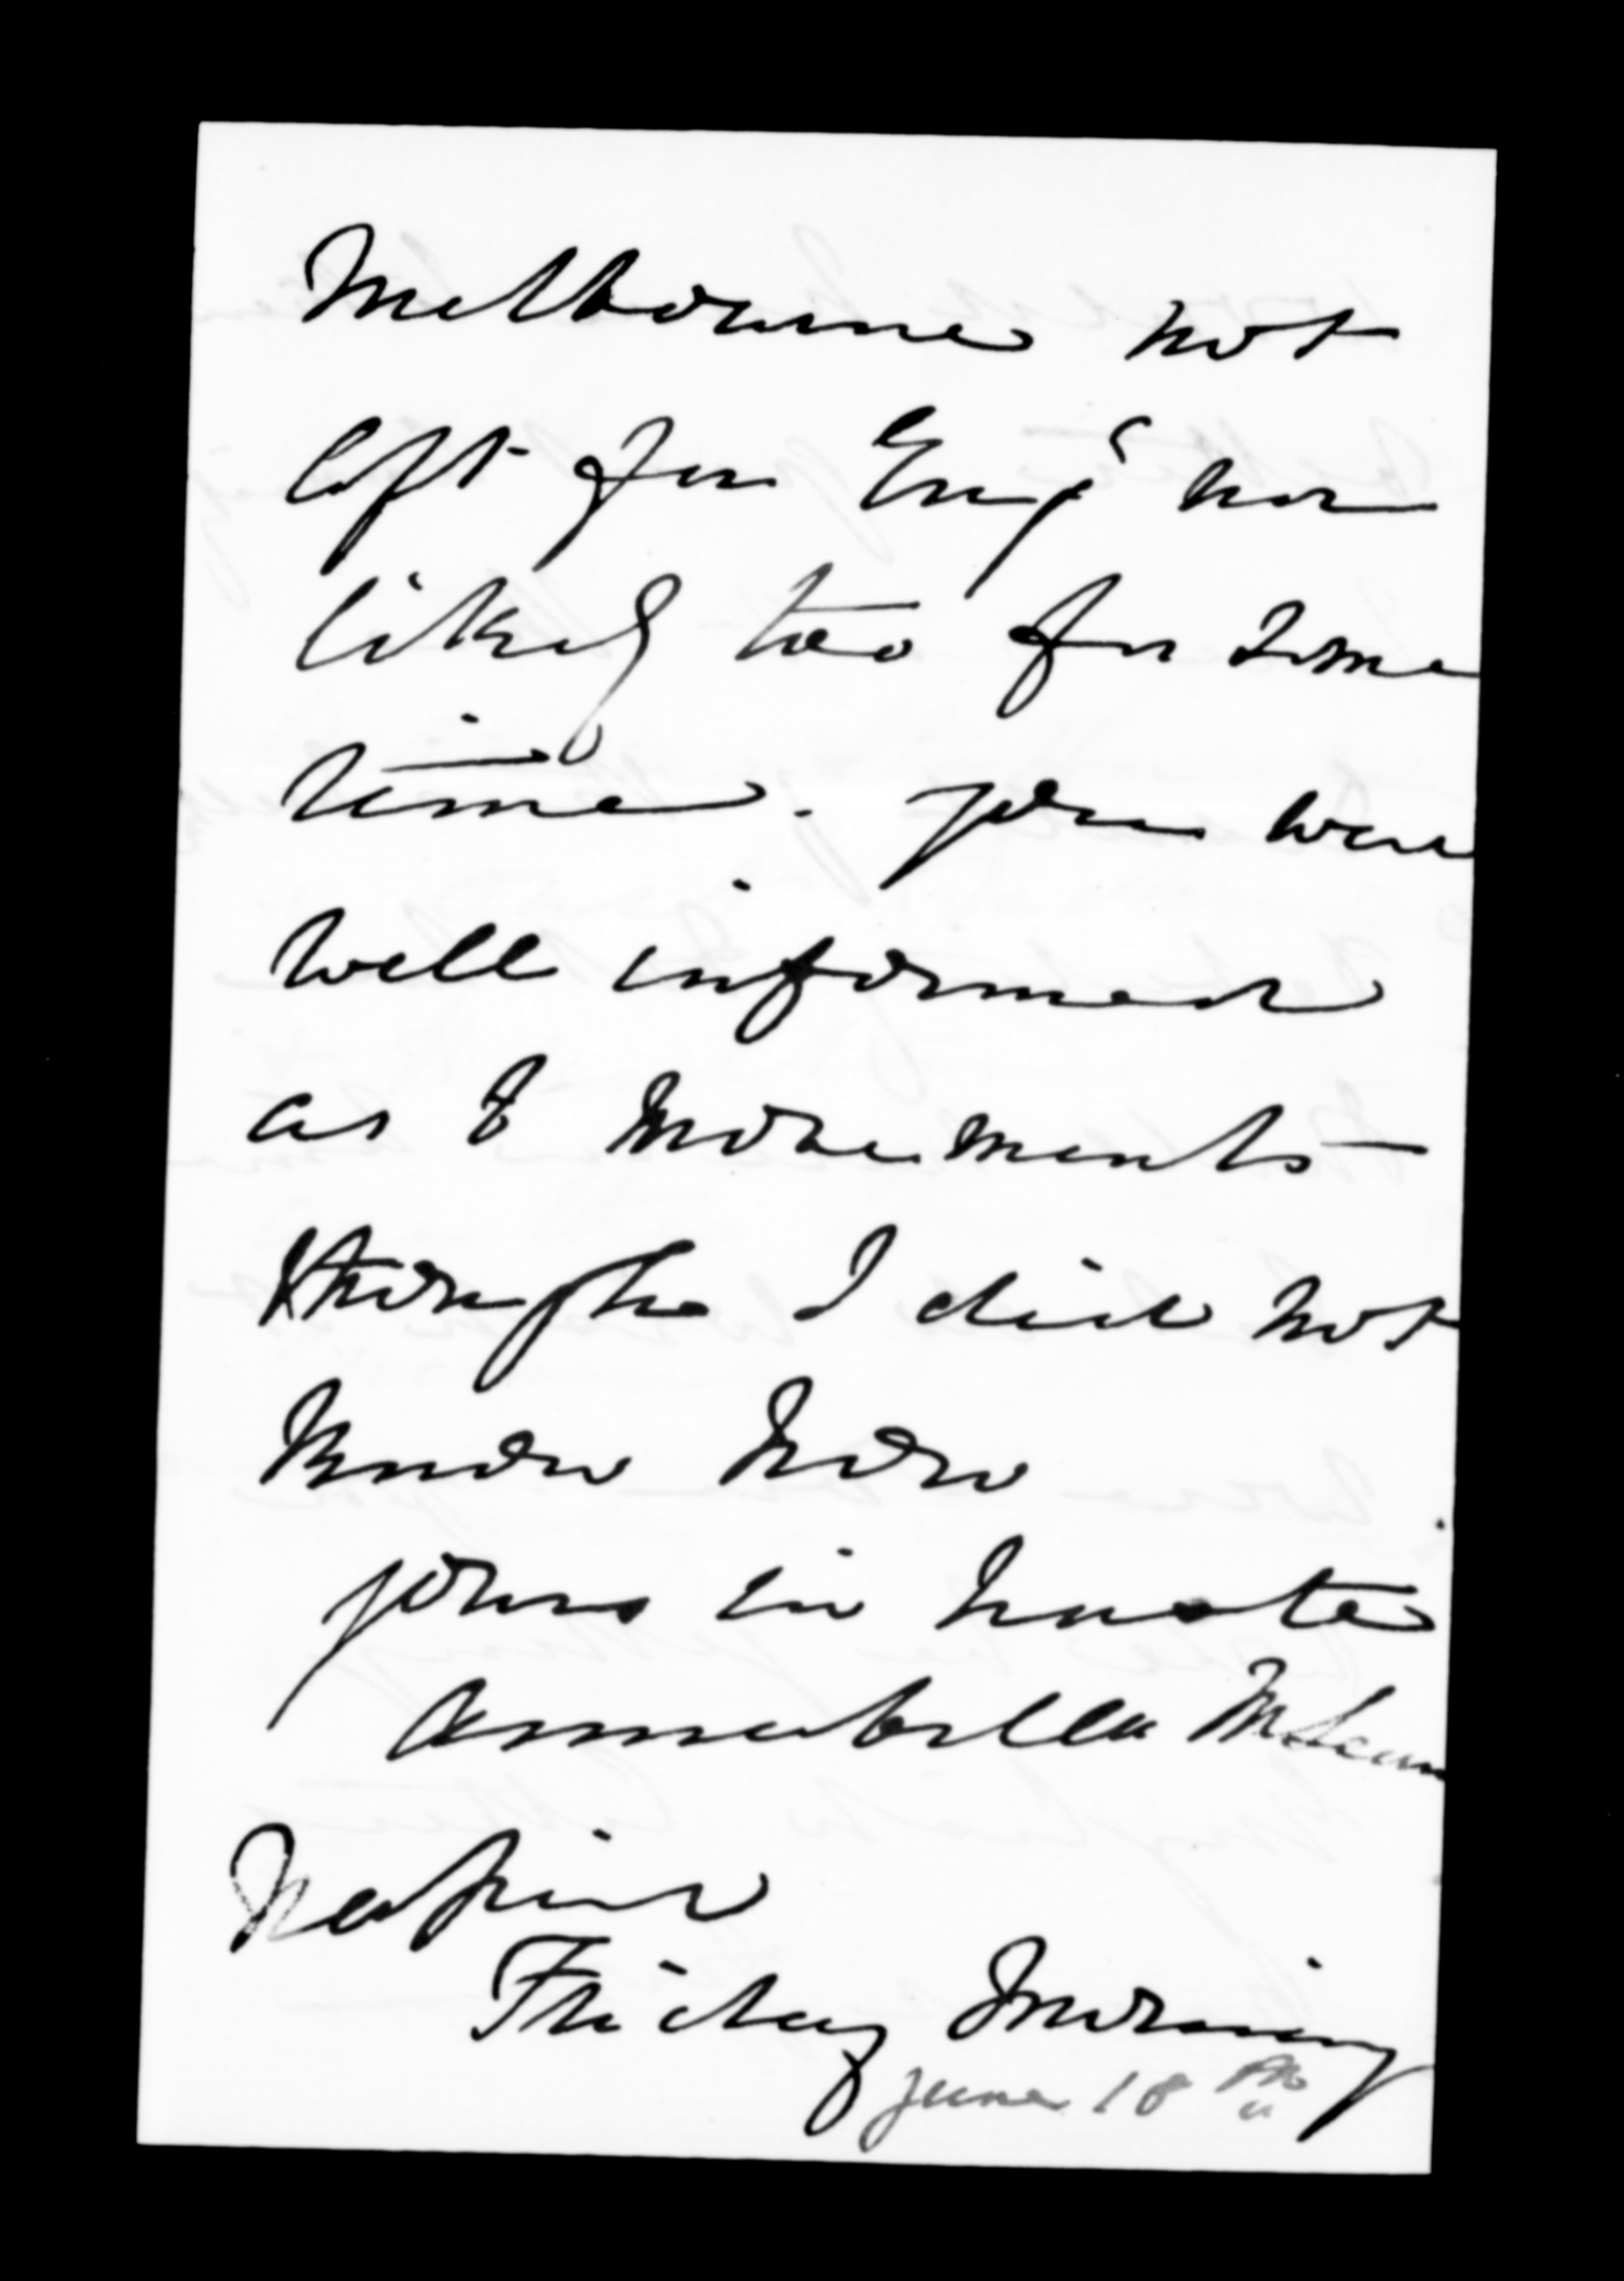 Melbourne not
left for Eng^d nor
likely too for some
time. you were
well informed
as to movements
though I did not
know how
yours in haste
Annabella McLean
Napier
Friday Morning
June 18th